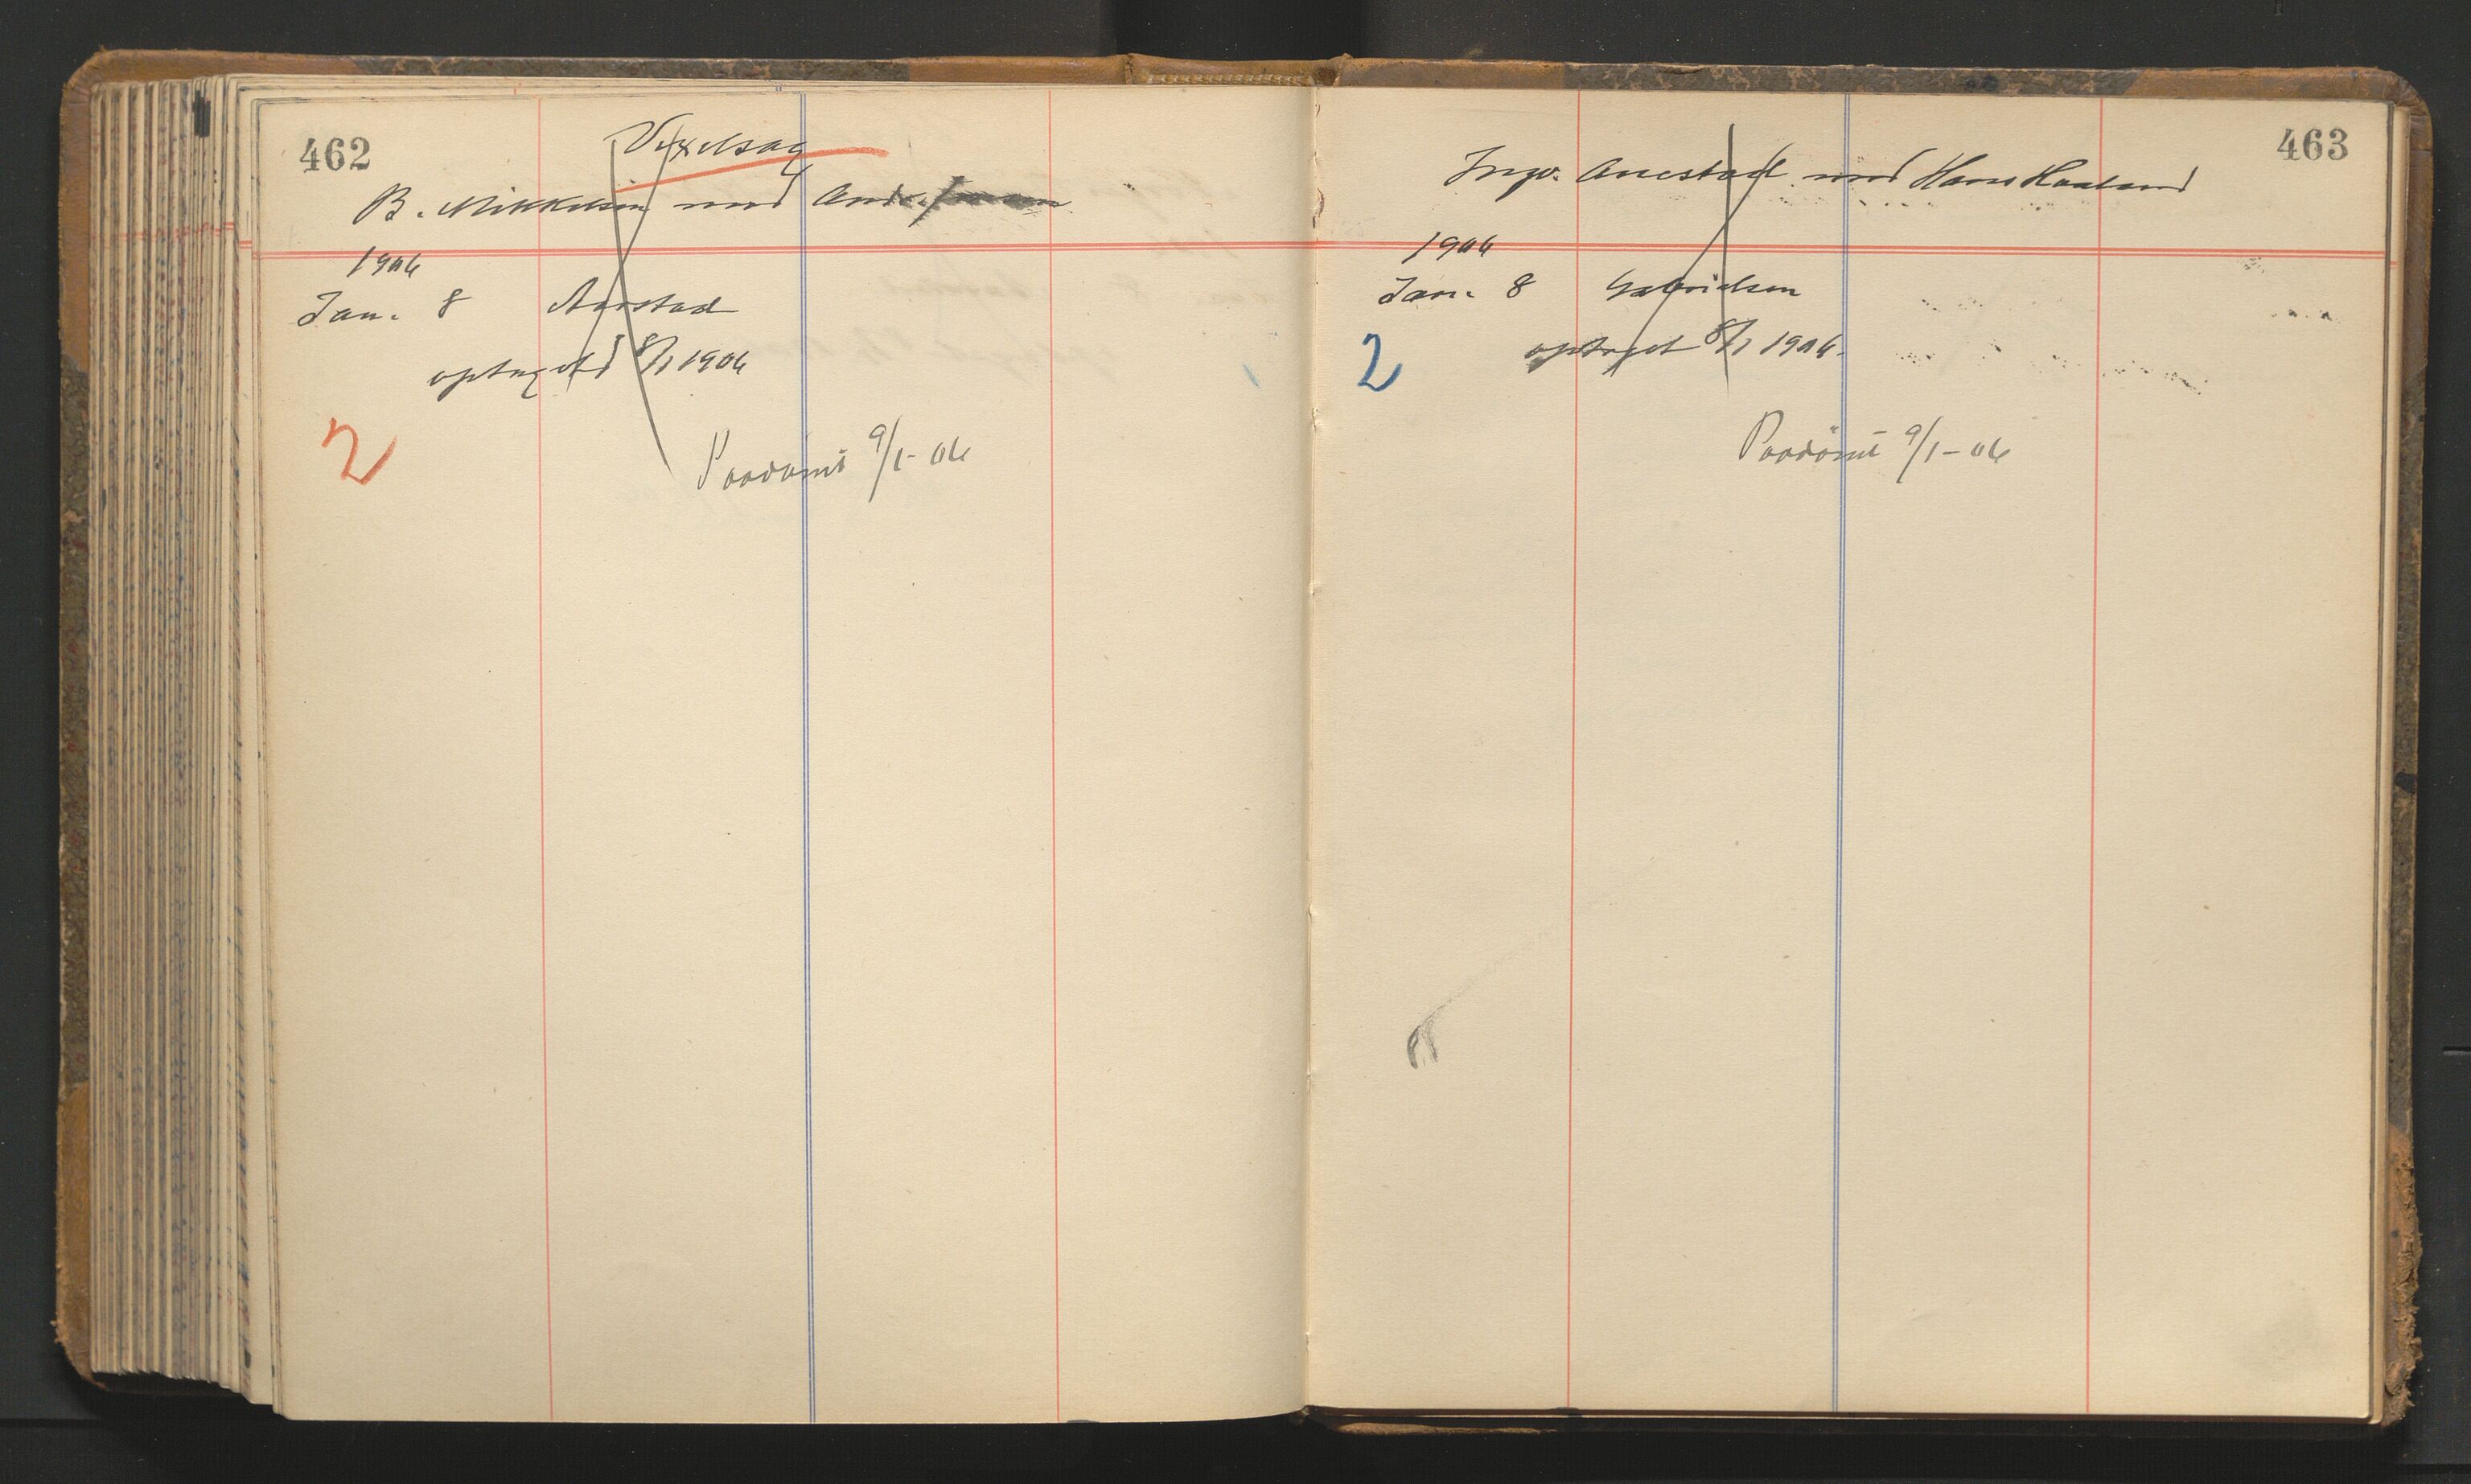 462
Vexelsag
B. Mikkelsen mod
1906
Jan. 8 Aarstad
optaget 8/1 1906
2
Paadømt 9/1-06
463
Ingv. Anestad mod Hans Haaland
1906
Jan. 8 Gabrielsen
2 optaget 8/1 1906.
Paadømt 9/1-06